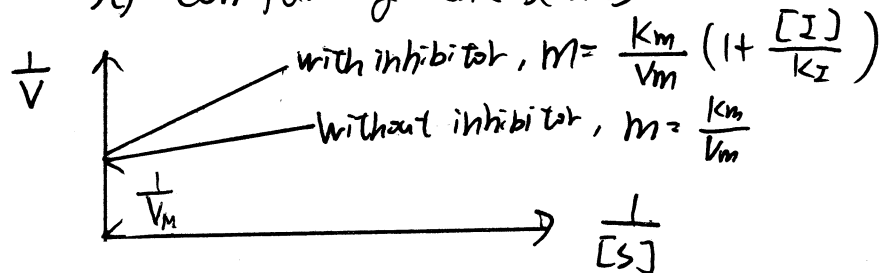 1/V
with inhibitor, m= Km/Vm (1+ [I]/KI)
without inhibitor, m= Km/Vm
1/VM
1/[S]